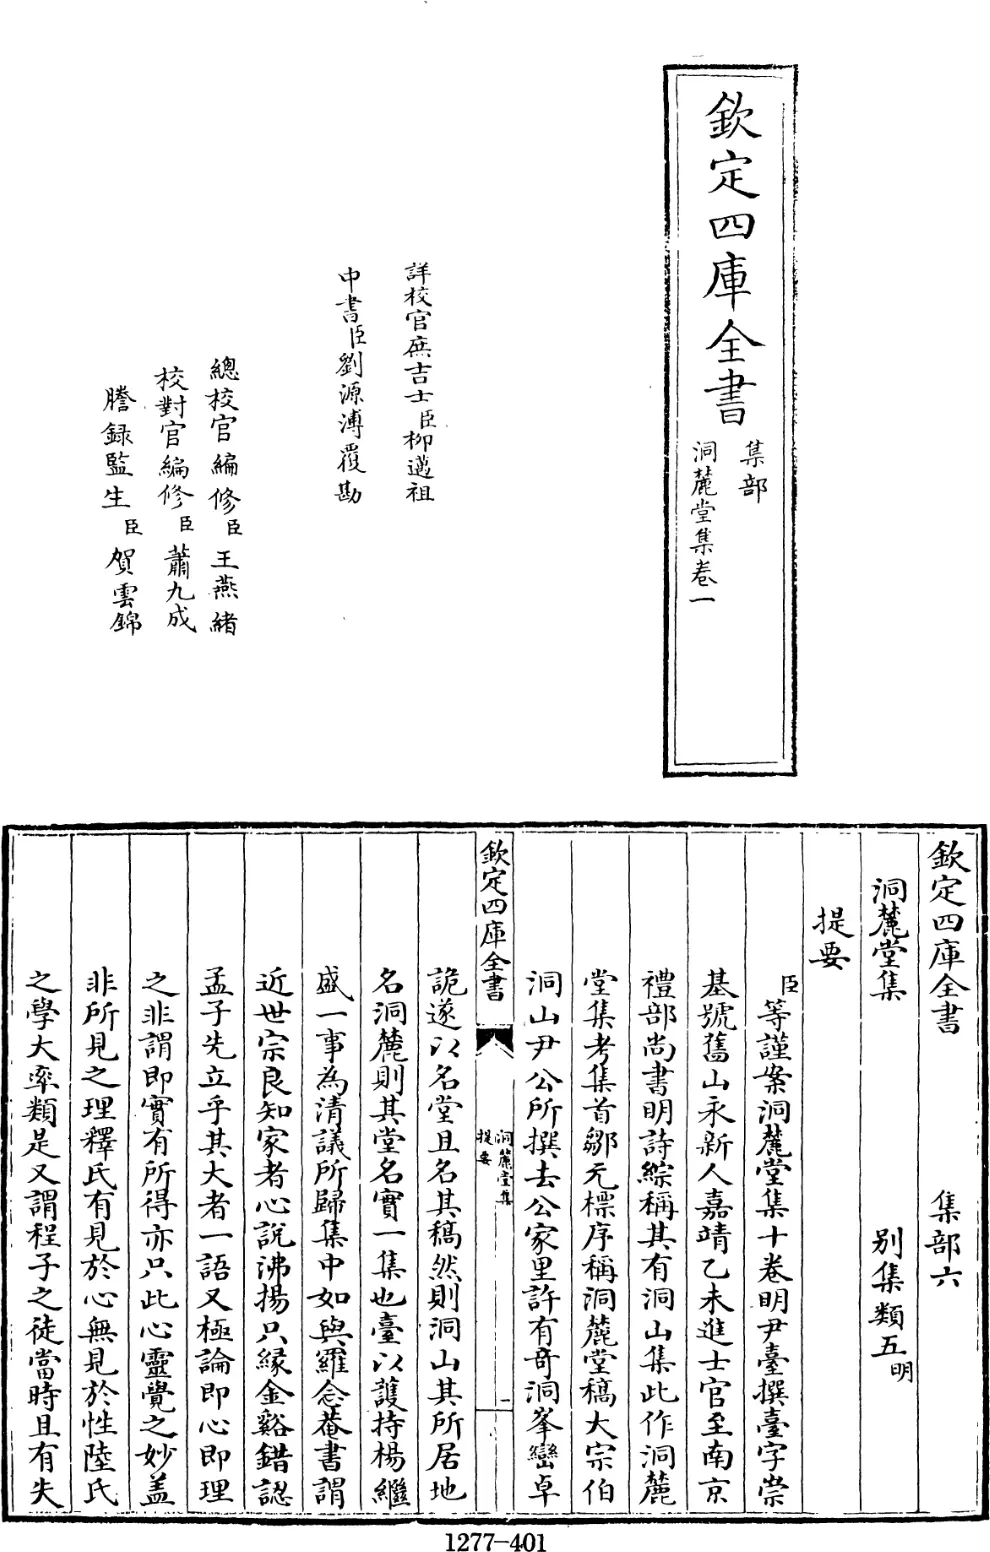 欽定四庫全書
集部
洞麓堂集卷一
詳校官庶吉士臣柳邁祖
中書臣劉源溥覆勘
總校官編修臣王燕緒
校對官編修臣蕭九成
謄錄監生臣賀雲錦
欽定四庫全書 集部六
洞麓堂集 別集類五明
提要
臣等謹案洞麓堂集十卷明尹臺撰臺字崇
基號舊山永新人嘉靖乙未進士官至南京
禮部尚書明詩綜稱其有洞山集此作洞麓
堂集考集首鄒元標序稱洞麓堂稿大宗伯
洞山尹公所撰去公家里許有奇洞峯巒卓
欽定四庫全書
洞麓堂集
提要
一
詭遂以名堂且名其稿然則洞山其所居地
名洞麓則其堂名實一集也臺以護持楊繼
盛一事為清議所歸集中如與羅念菴書謂
近世宗良知家者心說沸揚只緣金谿錯認
孟子先立乎其大者一語又極論即心即理
之非謂即實有所得亦只此心靈覺之妙盖
非所見之理釋氏有見於心無見於性陸氏
之學大率類是又謂程子之徒當時且有失
1277-401